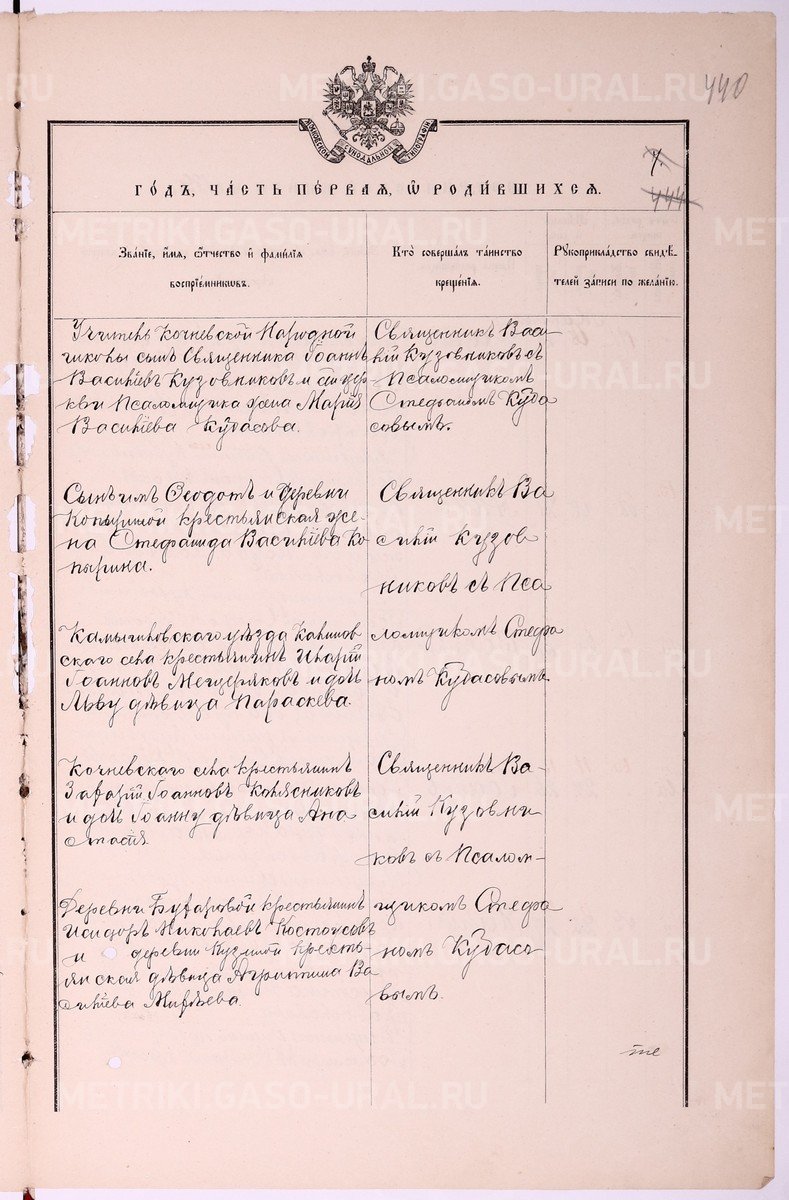 440
МОСКОВСКОЙ СѴНОДАЛЬНОЙ ТИПОГРАФІИ
7.
444
ГО́ДЪ, ЧА́СТЬ ПЕ́РВАЯ, Ѡ҆ РОДИ́ВШИХСЯ.
Зва́нїе, и҆́мя, ѻ҆́тчество и҆ фамі́лїя
воспрїе́мникωвъ.
Кто̀ соверша́лъ та́инство
креще́нїя.
Рꙋкоприкла́дство свидѣ́-
телей за́писи по жела́нїю.
Учитель Кочневской Народной
школы сынъ Священника Іоаннъ
Василіевъ Кузовниковъ и сей цер
кви Псаломщика жена Марія
Василіева Кудасова.
Священникъ Васи
лій Кузовниковъ съ
Псаломщикомъ
Стефаномъ Куда
совымъ.
Сынъ имъ Ѳеодотъ и деревни
Копыриной крестьянская же-
на Стефанида Василіева Ко
пырина.
Священникъ Ва
силій Кузов
никовъ съ Пса
ломщикомъ Стефа
номъ Кудасовымъ.
Камышловскаго уѣзда
скаго села крестьянинъ Иларій
Іоанновъ Мещеряковъ и дочь
Льву дѣвица Параскева.
Кочневскаго села крестьянинъ
Захарій Іоанновъ Колясниковъ
и дочь Іоанну дѣвица Ана
стасія.
Священникъ Ва-
силій Кузовни
ковъ съ Псалом-
щикомъ Стефа
номъ Кудасо
вымъ.
Деревни Бухаровой крестьянинъ
Исидоръ Николаевъ Костоусовъ
и деревни Кузиной кресть-
янская дѣвица Агриппина Ва
силіева
METRIKI.GASO-URAL.RU